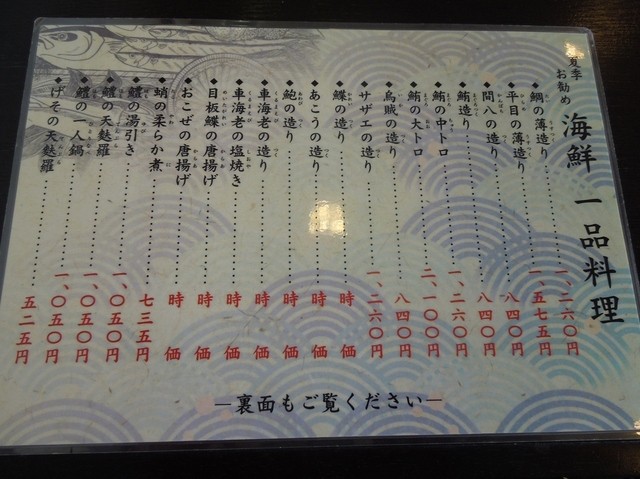 夏季
お勧め
海鮮一品料理
◆鯛の薄造り……一、二六〇円
◆平目の薄造り……一、五七五円
◆間八の造り……八四〇円
◆鮪造り……八四〇円
◆鮪の中トロ……一、二六〇円
◆鮪の大トロ……二、一〇〇円
◆烏賊の造り……八四〇円
◆サザエの造り……一、二六〇円
◆鰈の造り……時価
◆あこうの造り……時価
◆鮑の造り……時価
◆車海老の造り……時価
◆車海老の塩焼き……時価
◆目板鰈の唐揚げ……時価
◆おこぜの唐揚げ……時価
◆蛸の柔らか煮……七三五円
◆鱧の湯引き……一、〇五〇円
◆鱧の天麩羅……一、〇五〇円
◆鱧の一人鍋……一、〇五〇円
◆げその天麩羅……五二五円
―裏面もご覧ください―